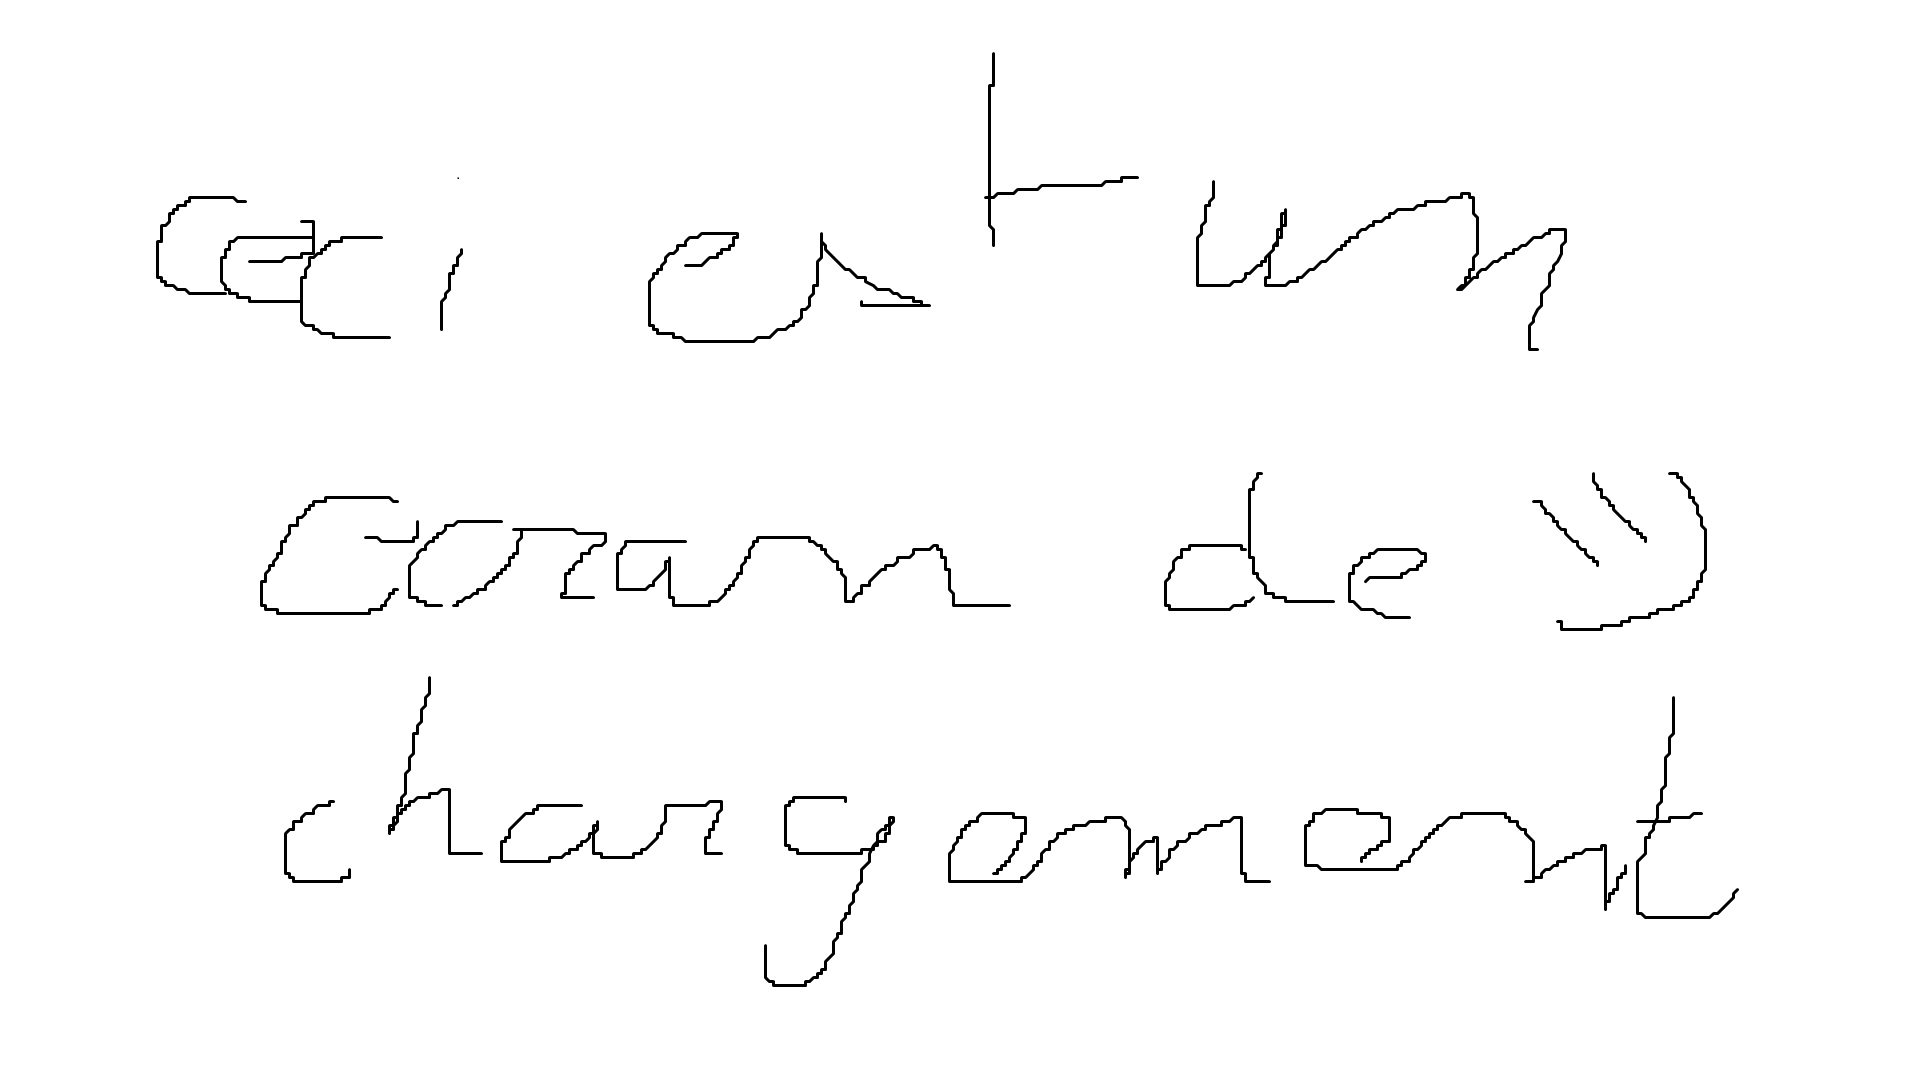 Ceci est un
Ecran de :)
chargement